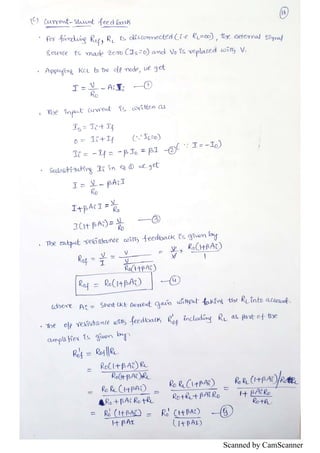 (c) Current-Shunt feedback
• For finding Rof, RL is disconnected (i.e RL=∞), The external signal
source is made zero (Is=0) and Vo is replaced with V.
• Applying KCL to the o/p node, we get
I = V/Ro - AiIi —①
• The input current is written as
Is = Ii + If
0 = Ii + If (∵ Is=0)
Ii = -If = -βIo = βI —② (∵ I = -Io)
• Substituting Ii in eq ① we get
I = V/Ro - βAiI
I + βAiI = V/Ro
I(1+βAi) = V/Ro —③
• The output resistance with feedback is given by
Rof = V/I = V / (V/Ro(1+βAi)) = V/V × Ro(1+βAi)/1
Rof = Ro(1+βAi) —④
where Ai = Short ckt current gain without taking the RL into account.
• The o/p resistance with feedback R'of including RL as part of the
amplifier is given by:
R'of = Rof||RL
= Ro(1+βAi)RL / Ro(1+βAi)+RL
= RoRL(1+βAi) / RL+βAiRo+Ro = RoRL(1+βAi) / Ro+RL+βAiRo = RoRL(1+βAi)/Ro+RL / 1+ βAiRo/Ro+RL
= R'o(1+βAi) / 1+βAI = R'o (1+βAi) / (1+βAI) —⑤
Scanned by CamScanner